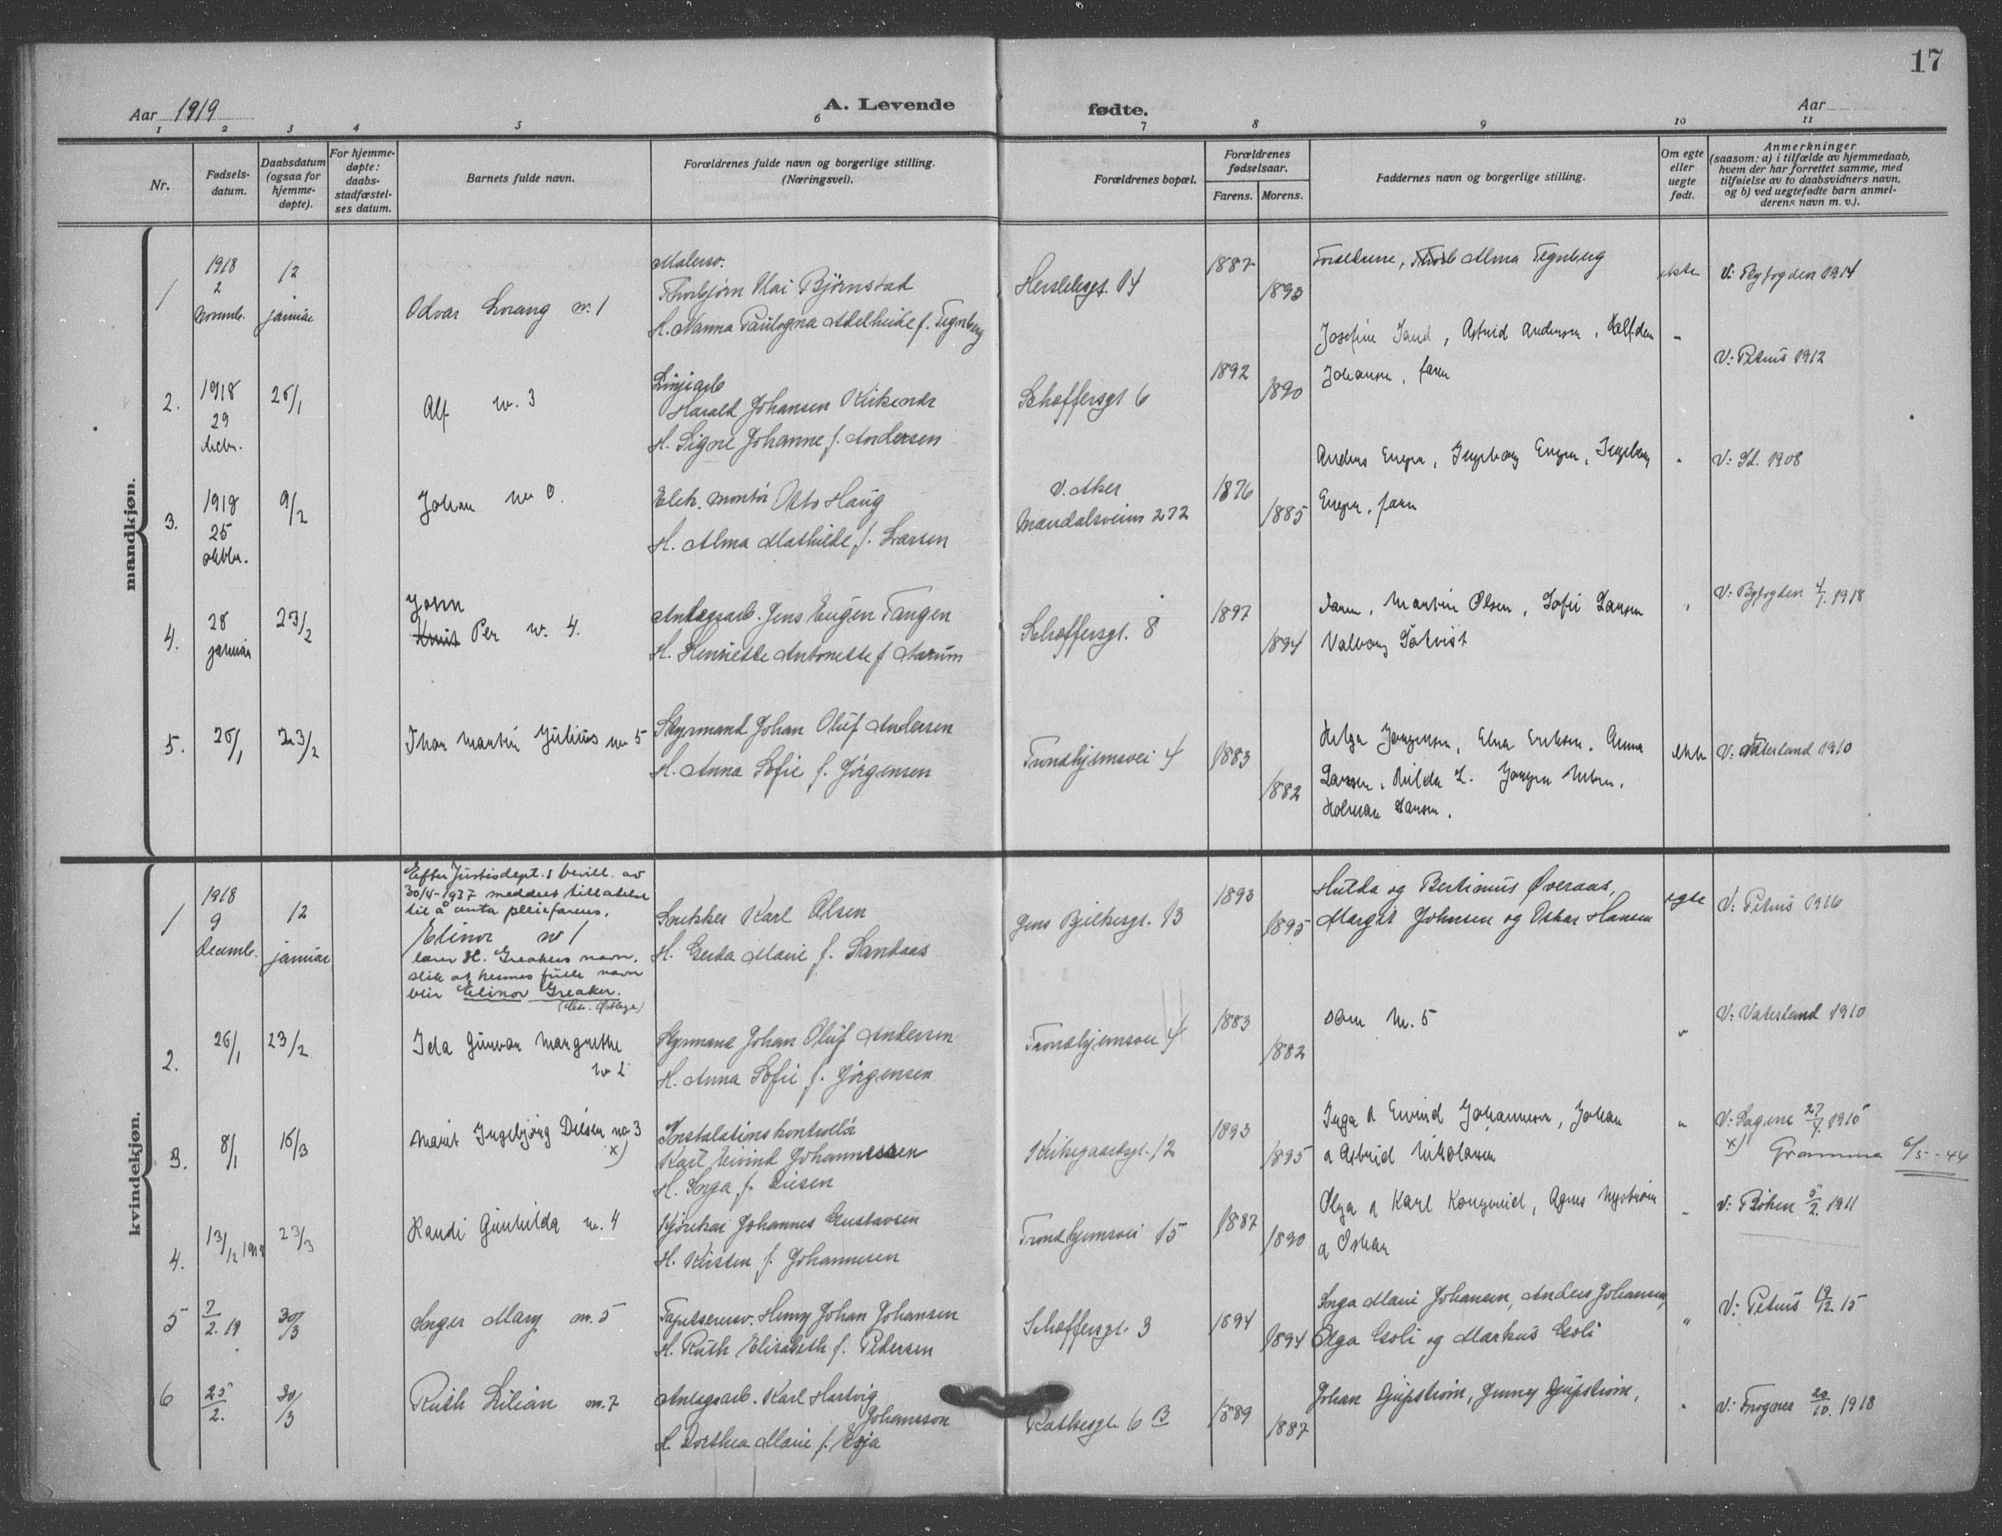 17
Aar 1919
A. Levende fødte.
Aar
1 2 3 4 5 6 7 8 9 10 11
Nr.
Fødselsdatum.
Daabsdatum (ogsaa for hjemmedøpte).
For hjemmedøpte: daabsstadfæstelses datum.
Barnets fulde navn.
Forældrenes fulde navn og borgerlige stilling. (Næringsvei).
Forældrenes bopæl.
Forældrenes fødselsaar.
Farens. Morens.
Faddernes navn og borgerlige stilling.
Om egte eller uegte født.
Anmerkninger
(saasom: a) i tilfælde av hjemmedaab,
hvem der har forrettet samme, med
tilføielse av to daabsvidners navn,
og b) ved uegtefødte barn anmelderens navn m. v.).
mandkjøn.
1
1918 2 Novemb.
12 januar
Odvar Lorang nr. 1
Malersv.
Thorbjørn Mai Bjørnstad
H. Nanna Paulogna Adelheide f. Tegnberg
Herslebsgt. 14
1887
1893
Forældrene, Alma Tegnberg
ekte
V: Byfogden 1914
2.
1918 29 Decbr.
26/1
Alf nr. 3
Harald Johansen Kirkendr
H. Signe Johanne f. Andersen
Schæffersgt 6
1892
1890
Josefine Sand, Astrid Andersen, Halfdan
Johansen, faren
"
V: Petrus 1912
3.
1918 25 oktbr.
9/2
Johan nr 0.
Elek. montør Otto Haug
H. Alma Mathilde f. Larsen
V. Aker
Mandalsveien 272
1876
1885
Anders Engen, Ingeborg Engen, Ingeborg
Engen, faren
"
V: St. 1908
4.
28 januar
23/2
John
Knut Per nr. 4.
Anlægsarb. Jens Eugen Tangen
H. Henriette Antonette f Aarum
Schæffersgt. 8
1897
1894
Faren, Martin Olsen, Sofie Larsen
Valborg
"
V: Byfogden 4/7. 1918
5.
26/1
23/2
Thor Martin Julius nr 5
Styrmand Johan Oluf Andersen
H. Anna Sofie f. Jørgensen
Trondhjemsvei 4
1883
1882
Helga Jørgensen, Elna Eriksen, Anna
Larsen, Hilda L. Jørgen
Holman Larsen.
ekte
V: Vaterland 1910
kvindekjøn.
1
1918 9 Decemb.
12 januar
Efter Justisdept.s bevill. av
30/4-1937 meddeles tillatelse
til å anta pleiefarens,
Elinor nr 1
lærer H. Greakers navn,
slik at hennes fulle navn
blir Elinor Greaker.
Snekker Karl Olsen
H. Gerda Marie f. Sandaas
Jens Bjelkesgt. 13
1893
1895
Hulda og Bertinius Øveraas,
Margit Johnsen og Oskar Hansen
egte
V: Petrus 1916
2.
26/1
23/2
Ida Gunvor Margrethe
nr 2
Styrmand Johan Oluf Andersen
H. Anna Sofie f. Jørgensen
Trondhjemsvei 4
1883
1882
som nr. 5
"
V: Vaterland 1910
3.
8/1
16/3
Marit Ingebjørg Diesen nr 3
x)
Instalationskontrollør
Karl Eivind Johannessen
H. Inga f. Diesen
Kirkegaardsgt. 12
1893
1895
Inga & Eivind Johannesen, Johan
& Astrid Nikolaisen
"
V: Sagene 27/7. 1915
x) Gramma 6/5-44
4.
13/12 1918
23/3
Randi Gunhilda nr. 4
Johannes Gustavsen
H. Kristen f. Johannesen
Trondhjemsvei 15
1887
1890
Olga & Karl Kongsrud, Agnes Nystrøm
& Oskar
"
V: Bøhen 5/2. 1911
5
7/2. 19
30/3
Inger Mary nr. 5
Tapetserersv. Henry Johan Johansen
H. Ruth Elisabeth f. Pedersen
Schæffersgt. 3
1894
1894
Inga Marie Johansen, Anders Johansen,
Olga Gsoli og Markus Gsoli
"
V: Petrus 19/12 15
6
25/2.
30/3
Ruth Lilian nr. 7
Anlagsarb. Karl Hartvig
Johansson
H. Dorthea Marie f. Erja
Rathkesgt. 6 B
1889
1887
Johan Djupstrøm, Jenny Djupstrøm,
"
V: Frogner 20/10. 1918